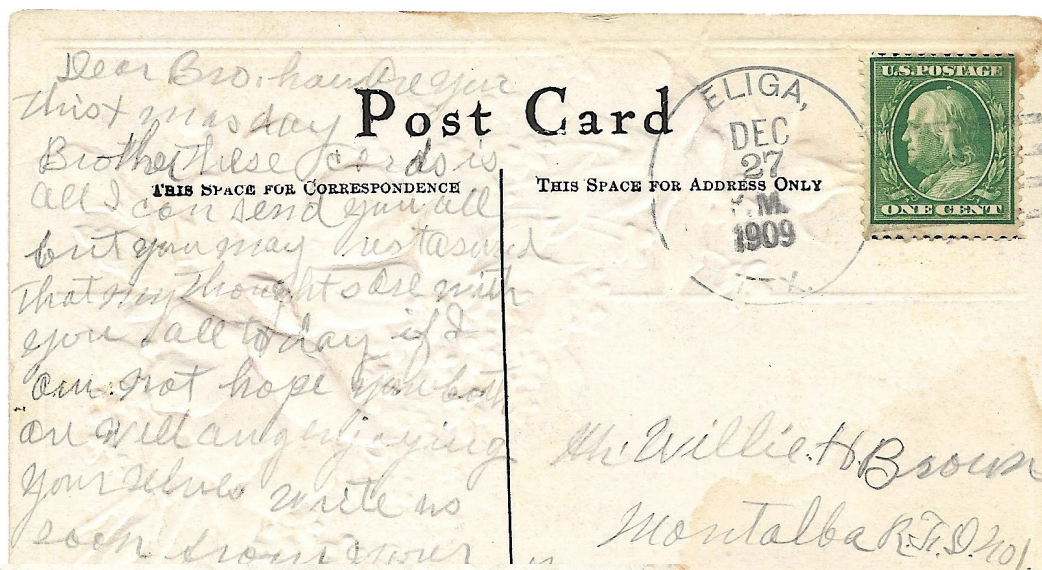 Post Card
THIS SPACE FOR CORRESPONDENCE
THIS SPACE FOR ADDRESS ONLY
ELIGA,
DEC
27
.M.
1909
U.S. POSTAGE
ONE CENT
Dear Bro, how are you
this xmas day
Brother these cards is
all I can send you all
but you may rest
that my thoughts are with
you all to day if I
am not hope you both
are well an enjoying
your selves write us
soon from your
Mr. Willie H Brown
Montalba R.F.D. No 1.